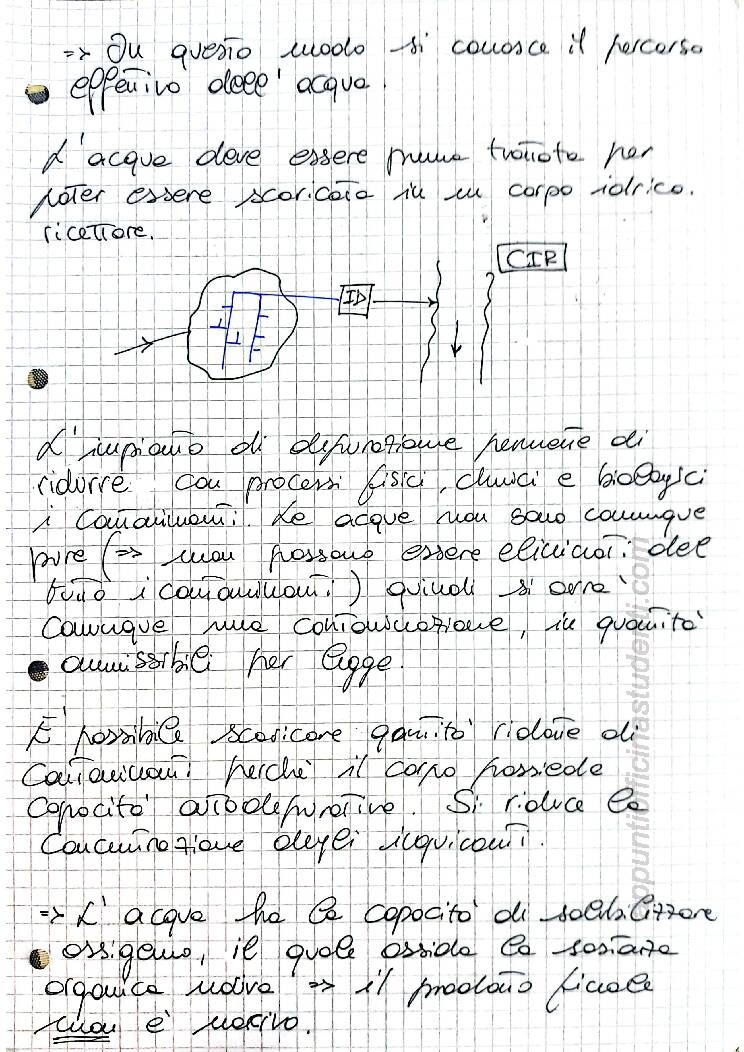 => In questo modo si conosce il percorso
effettivo dell'acqua.
L'acqua deve essere prima trattata per
poter essere scaricata in un corpo idrico.
ricettore.
CIR
ID
L'impianto di depurazione permette di
ridurre con processi fisici, chimici e biologici
i contaminanti. Le acque non sono comunque
pure (=> non possono essere eliminati del
tutto i contaminanti) quindi si avrà
comunque una contaminazione, in quantità
ammissibili per legge.
E' possibile scaricare quantità ridotte di
contaminanti perchè il corpo possiede
capacità autodepurativa. Si riduce la
concentrazione degli inquinanti.
=> L'acqua ha la capacità di solubilizzare
ossigeno, il quale ossida la sostanza
organica nociva => il prodotto finale
non è nocivo.
appuntiofficinastudenti.com